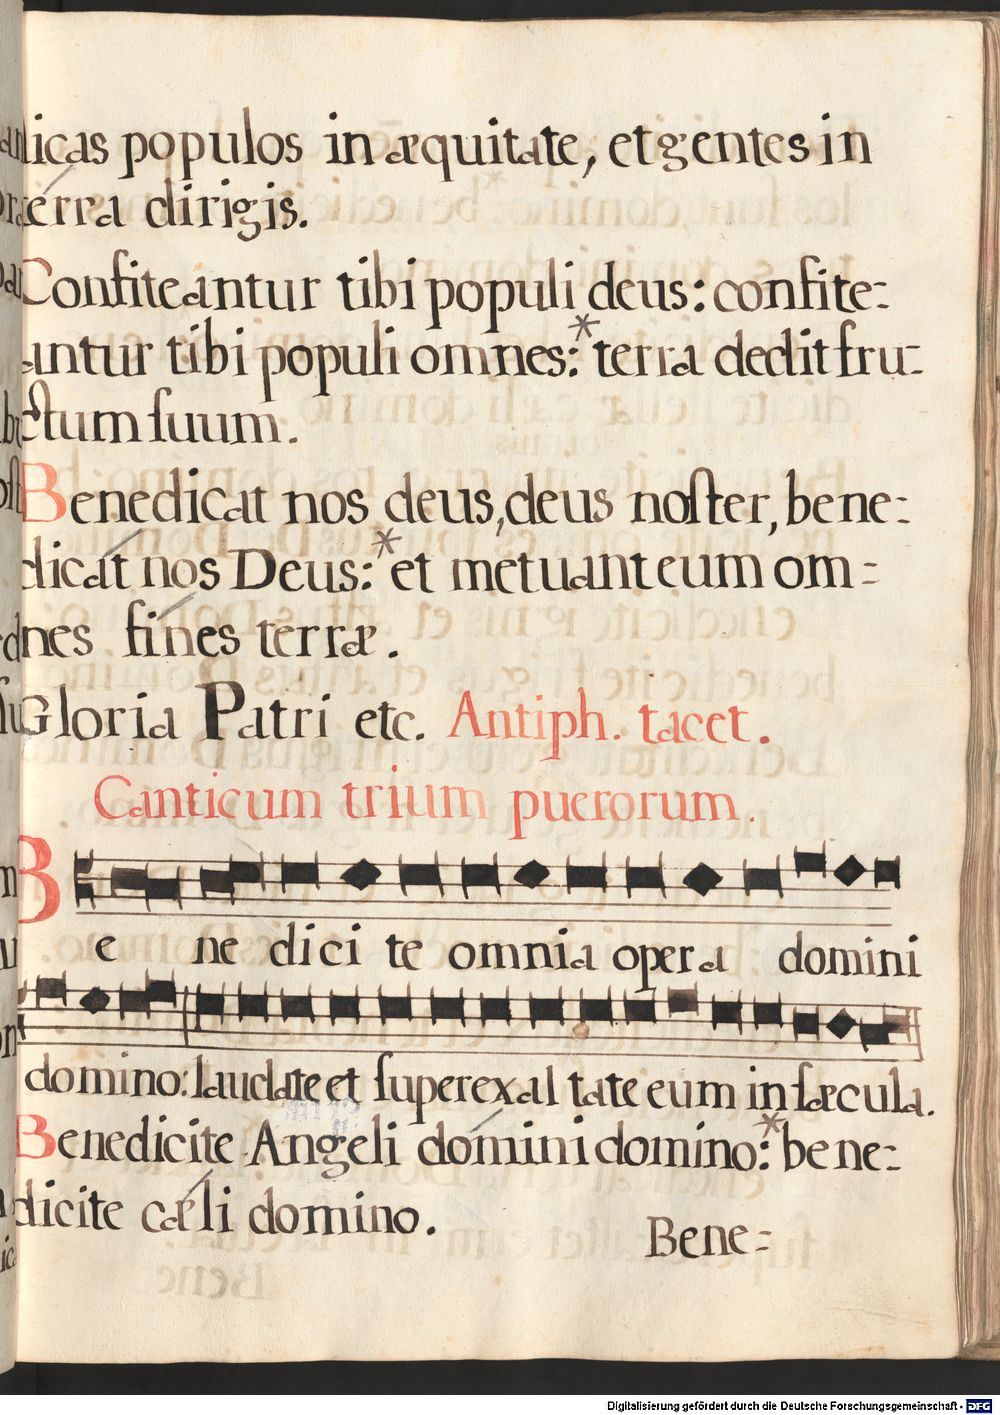 dicas populos in æquitate, et gentes in
terra dirigis.
Confiteantur tibi populi deus: confite-
antur tibi populi omnes:* terra dedit fru-
ctum suum.
Benedicat nos deus, deus noster, bene-
dicat nos Deus:* et metuant eum om-
nes fines terræ.
Gloria Patri etc. Antiph. tacet.
Canticum trium puerorum.
Be ne dici te omnia opera domini
domino: laudate et superexal tate eum in sæcula.
Benedicite Angeli domini domino:* bene-
dicite cæli domino.
Bene-
Digitalisierung gefördert durch die Deutsche Forschungsgemeinschaft - DFG